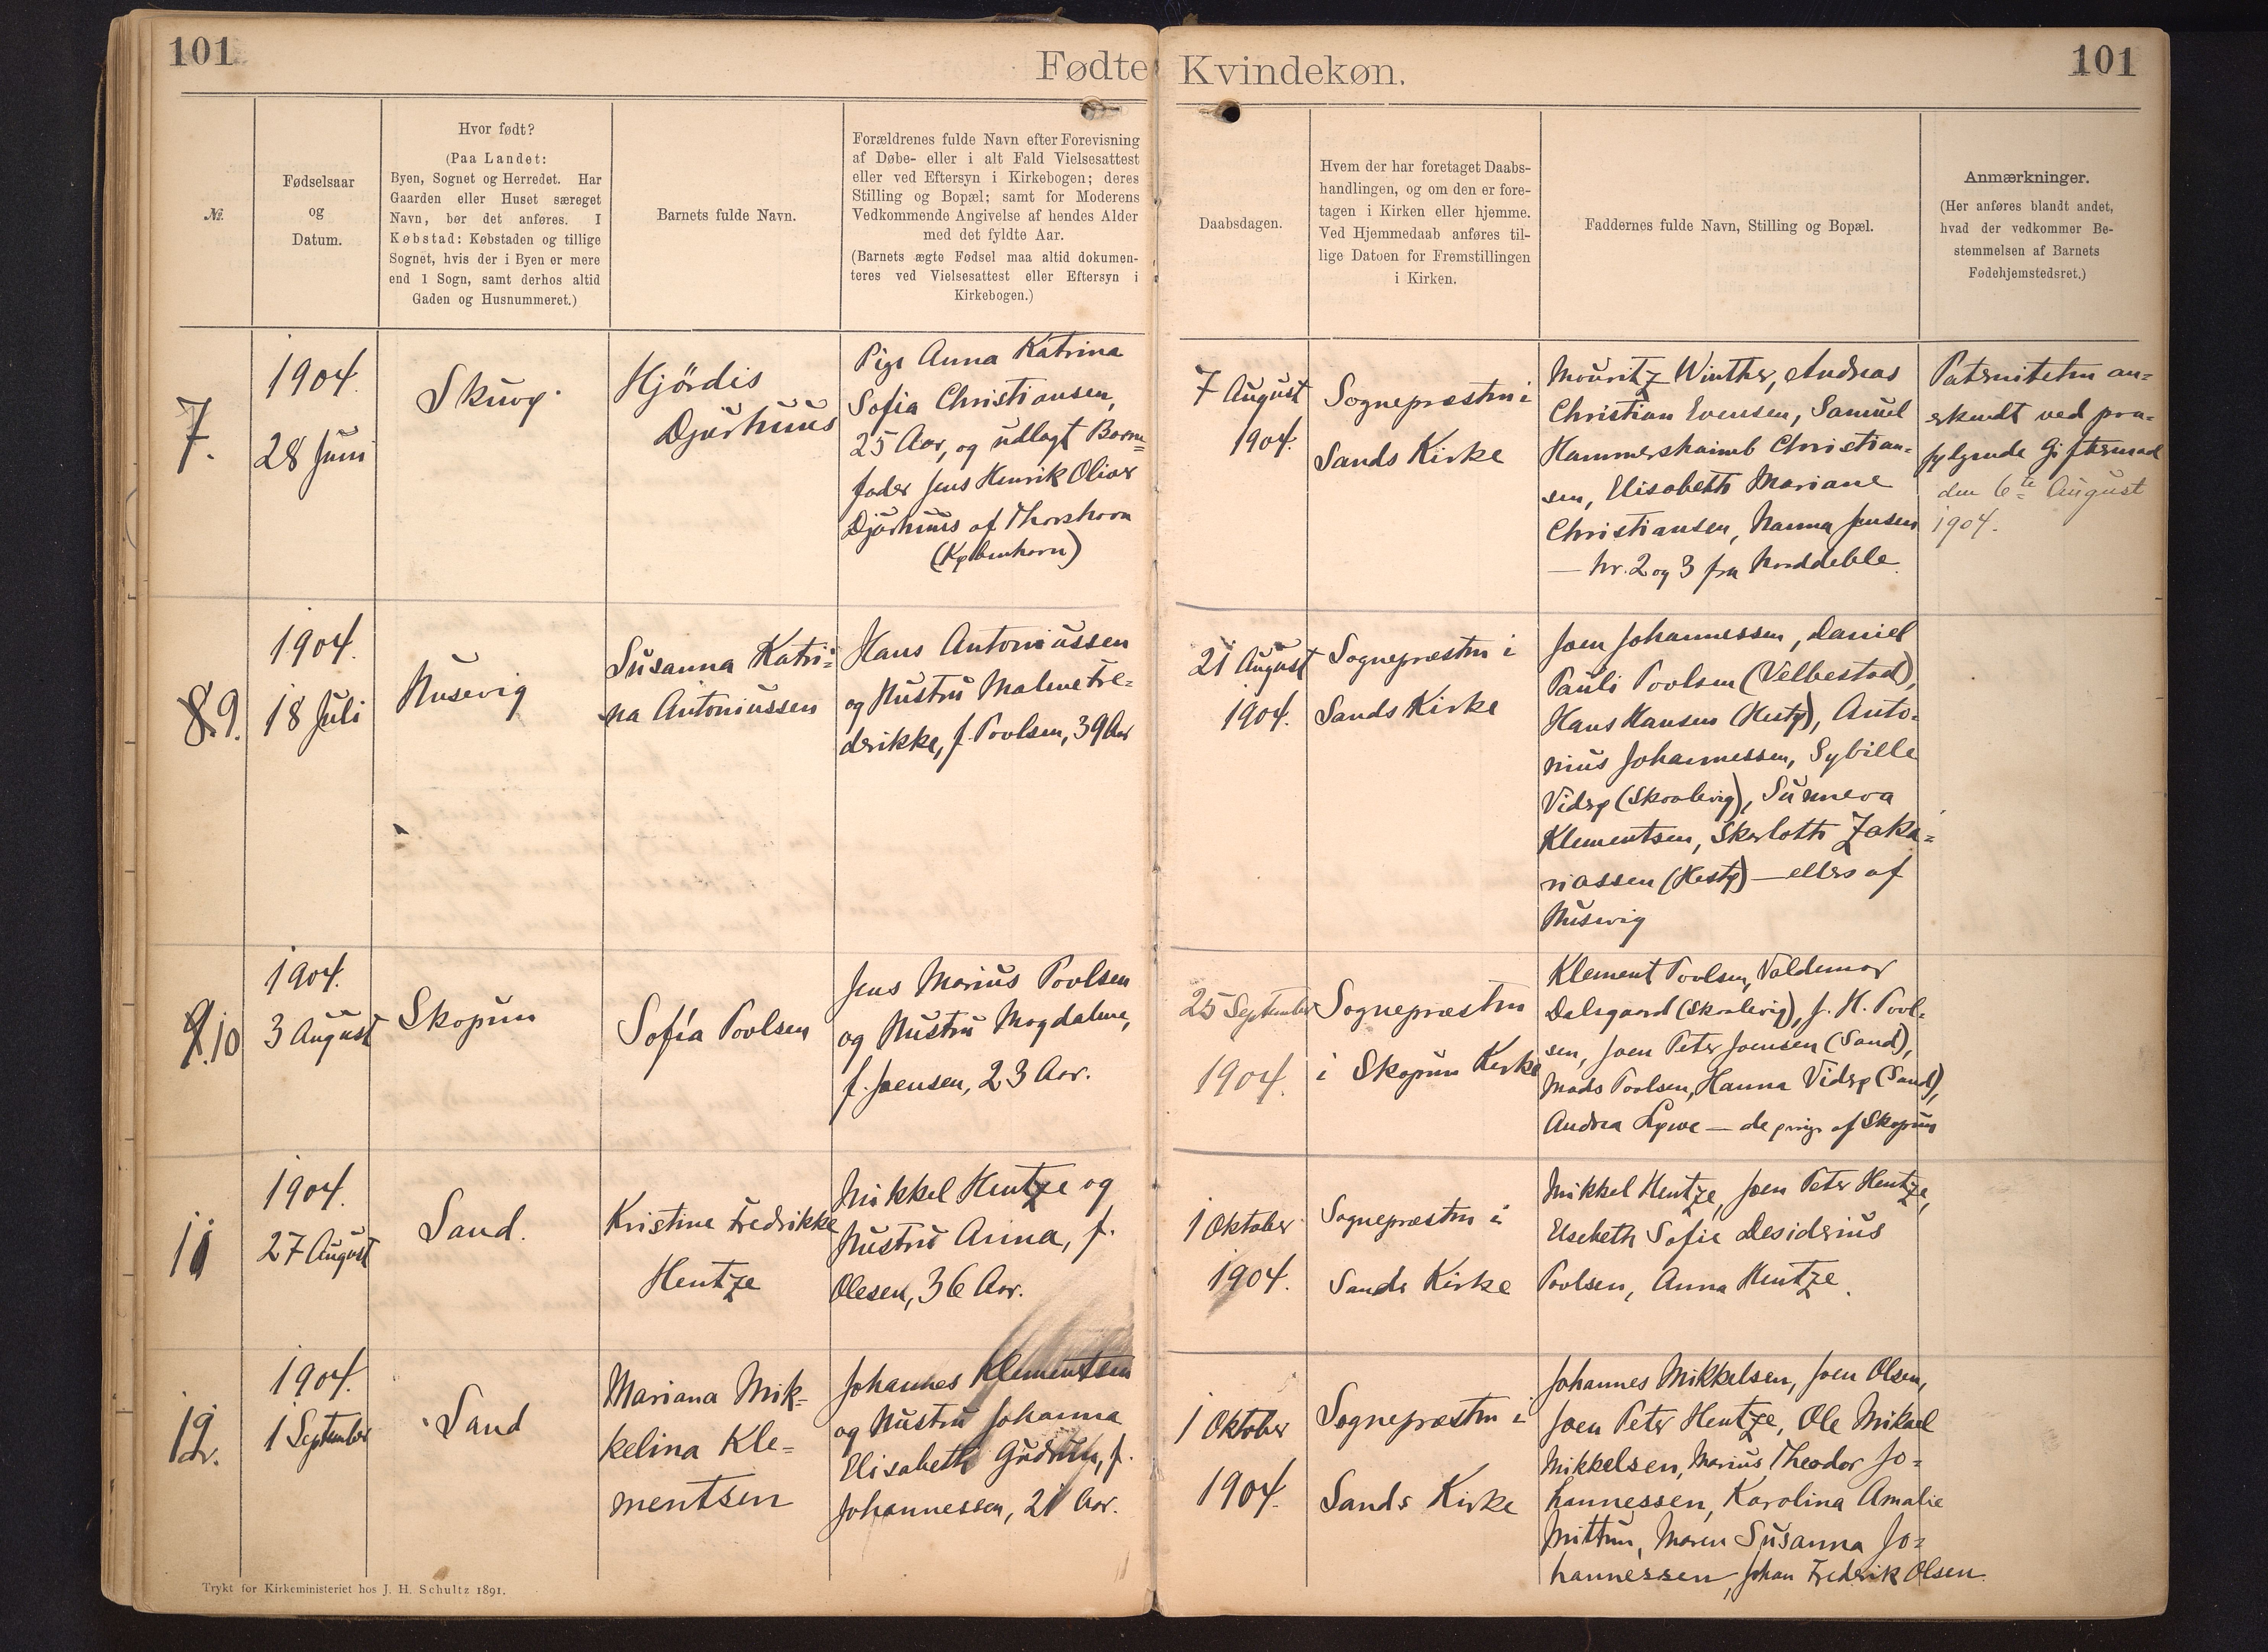 101
Fødte Kvindekøn.
101
№.
Fødselsaar
og
Datum.
Hvor født?
(Paa Landet:
Byen, Sognet og Herredet. Har
Gaarden eller Huset særeget
Navn, bør det anføres. I
Købstad: Købstaden og tillige
Sognet, hvis der i Byen er mere
end 1 Sogn, samt derhos altid
Gaden og Husnummeret.)
Barnets fulde Navn.
Forældrenes fulde Navn efter Forevisning
af Døbe- eller i alt Fald Vielsesattest
eller ved Eftersyn i Kirkebogen; deres
Stilling og Bopæl; samt for Moderens
Vedkommende Angivelse af hendes Alder
med det fyldte Aar.
(Barnets ægte Fødsel maa altid dokumen-
teres ved Vielsesattest eller Eftersyn i
Kirkebogen.)
Daabsdagen.
Hvem der har foretaget Daabs-
handlingen, og om den er fore-
tagen i Kirken eller hjemme.
Ved Hjemmedaab anføres til-
lige Datoen for Fremstillingen
i Kirken.
Faddernes fulde Navn, Stilling og Bopæl.
Anmærkninger.
(Her anføres blandt andet,
hvad der vedkommer Be-
stemmelsen af Barnets
Fødehjemstedsret.)
7.
1904.
28 Juni
Skuø
Hjördis
Djurhuus
Pige Anna Katrina
Sofia Christiansen,
25 Aar, og udlagt Barne=
fader Jens Henrik Oliver
Djurhuus af Thorshavn
(København)
7 August
1904.
Sognepræsten i
Sands Kirke
Mouritz Winther, Andreas
Christian Evensen, Samuel
Hammershaimb Christian-
sen, Elisabeth Mariane
Christiansen, Nanna Jensen
— Nr. 2 og 3 fra Norddeble
Paterniteten an=
erkendt ved paa-
følgende Giftermaal
den 6te August
1904.
8. 9.
1904.
18 Juli
Husevig
Susanna Katri=
na Antoniussen
Hans Antoniussen
og Hustru Malene Fre-
derikke, f. Poulsen, 39 Aar
21 August
1904.
Sognepræsten i
Sands Kirke
Joen Johannessen, Daniel
Pauli Poulsen (Velbestad),
Hans Hansen (Hestø), Anto-
nius Johannessen, Sybille
Viderø (Skaalevig), Sunneva
Klementsen, Skarloth Zaka=
riassen (Hestø) — ellers af
Husevig
9. 10
1904.
3 August
Skopun
Sofía Poulsen
Jens Marius Poulsen
og Hustru Magdalene,
f. Joensen, 23 Aar.
25 September
1904.
Sognepræsten
i Skopun Kirke
Klement Poulsen, Valdemar
Dalsgaard (Skaalevig), J. H. Poul-
sen, Joen Peter Joensen (Sand),
Mads Poulsen, Hanna Viderø (Sand),
Andrea Løwe — de øvrige af Skopun
11
1904.
27 August
Sand.
Kristine Fredrikke
Hentze
Mikkel Hentze og
Hustru Anna, f.
Olesen, 36 Aar.
1 Oktober
1904.
Sognepræsten i
Sands Kirke
Mikkel Hentze, Joen Peter Hentze,
Elsebeth Sofie Desiderius
Poulsen, Anna Hentze.
12.
1904.
1 September
Sand
Mariana Mik-
kelina Kle=
mentsen
Johannes Klementsen
og Hustru Johanna
Elisabeth Gudrun, f.
Johannessen, 21 Aar.
1 Oktober
1904.
Sognepræsten i
Sands Kirke
Johannes Mikkelsen, Joen Olsen,
Joen Peter Hentze, Ole Mikael
Mikkelsen, Marius Theodor Jo=
hannessen, Karolina Amalie
Mittun, Maren Susanna Jo=
hannessen, Johan Frederik Olsen.
Trykt for Kirkeministeriet hos J. H. Schultz 1891.